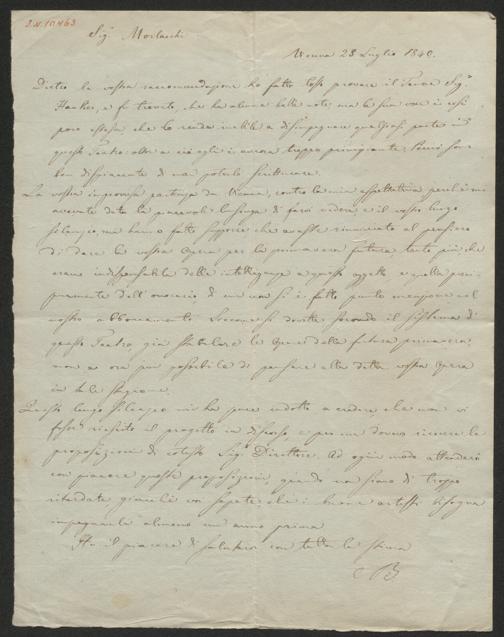 I.N. 10463
Sig.r Morlacchi
Vienna 28 Luglio 1840.
Dietro la vostra raccomandazione ho fatto tosto provare il Tenore Sig.r
e fu trovato, che ha alcune belle note, ma la sua voce è così
poco estesa, che lo rende inabile a disimpegnare qualsiasi parte in
questo Teatro: oltre a ciò egli è ancora troppo principiante. Perciò sono
ben dispiacente di non poterlo
La vostra improvisa partenza da Vienna, contro la mia aspettativa perchè mi
avevate data la piacevole lusinga di farvi vedere, e il vostro lungo
silenzio, mi hanno fatto supporre che avreste rinunciato al pensiero
di dare la vostra opera per la primavera futura tanto più che
erano indispensabili delle intelligenze a questo oggetto e quella
dell' onorario di cui non si è fatto punto menzione nel
nostro abboccamento. dovetti secondo il sistema di
questo Teatro, già stabilire le opere della futura primavera,
non è ora più possibile di pensare alla detta vostra opera
in tale stagione.
Questo lungo silenzio mi ha pure indotto a credere che non vi
fosse riescito il progetto in discorso, e per me dovevo ricevere le
proposizioni di cotesto Sig.r Direttore. Ad ogni modo attenderò
con piacere queste proposizioni, quando non siano di troppo
ritardate giacchè voi sapete, che i buoni artisti bisogna
impegnarli almeno un anno prima
Ho il piacere di salutarvi con tutta la stima
B.